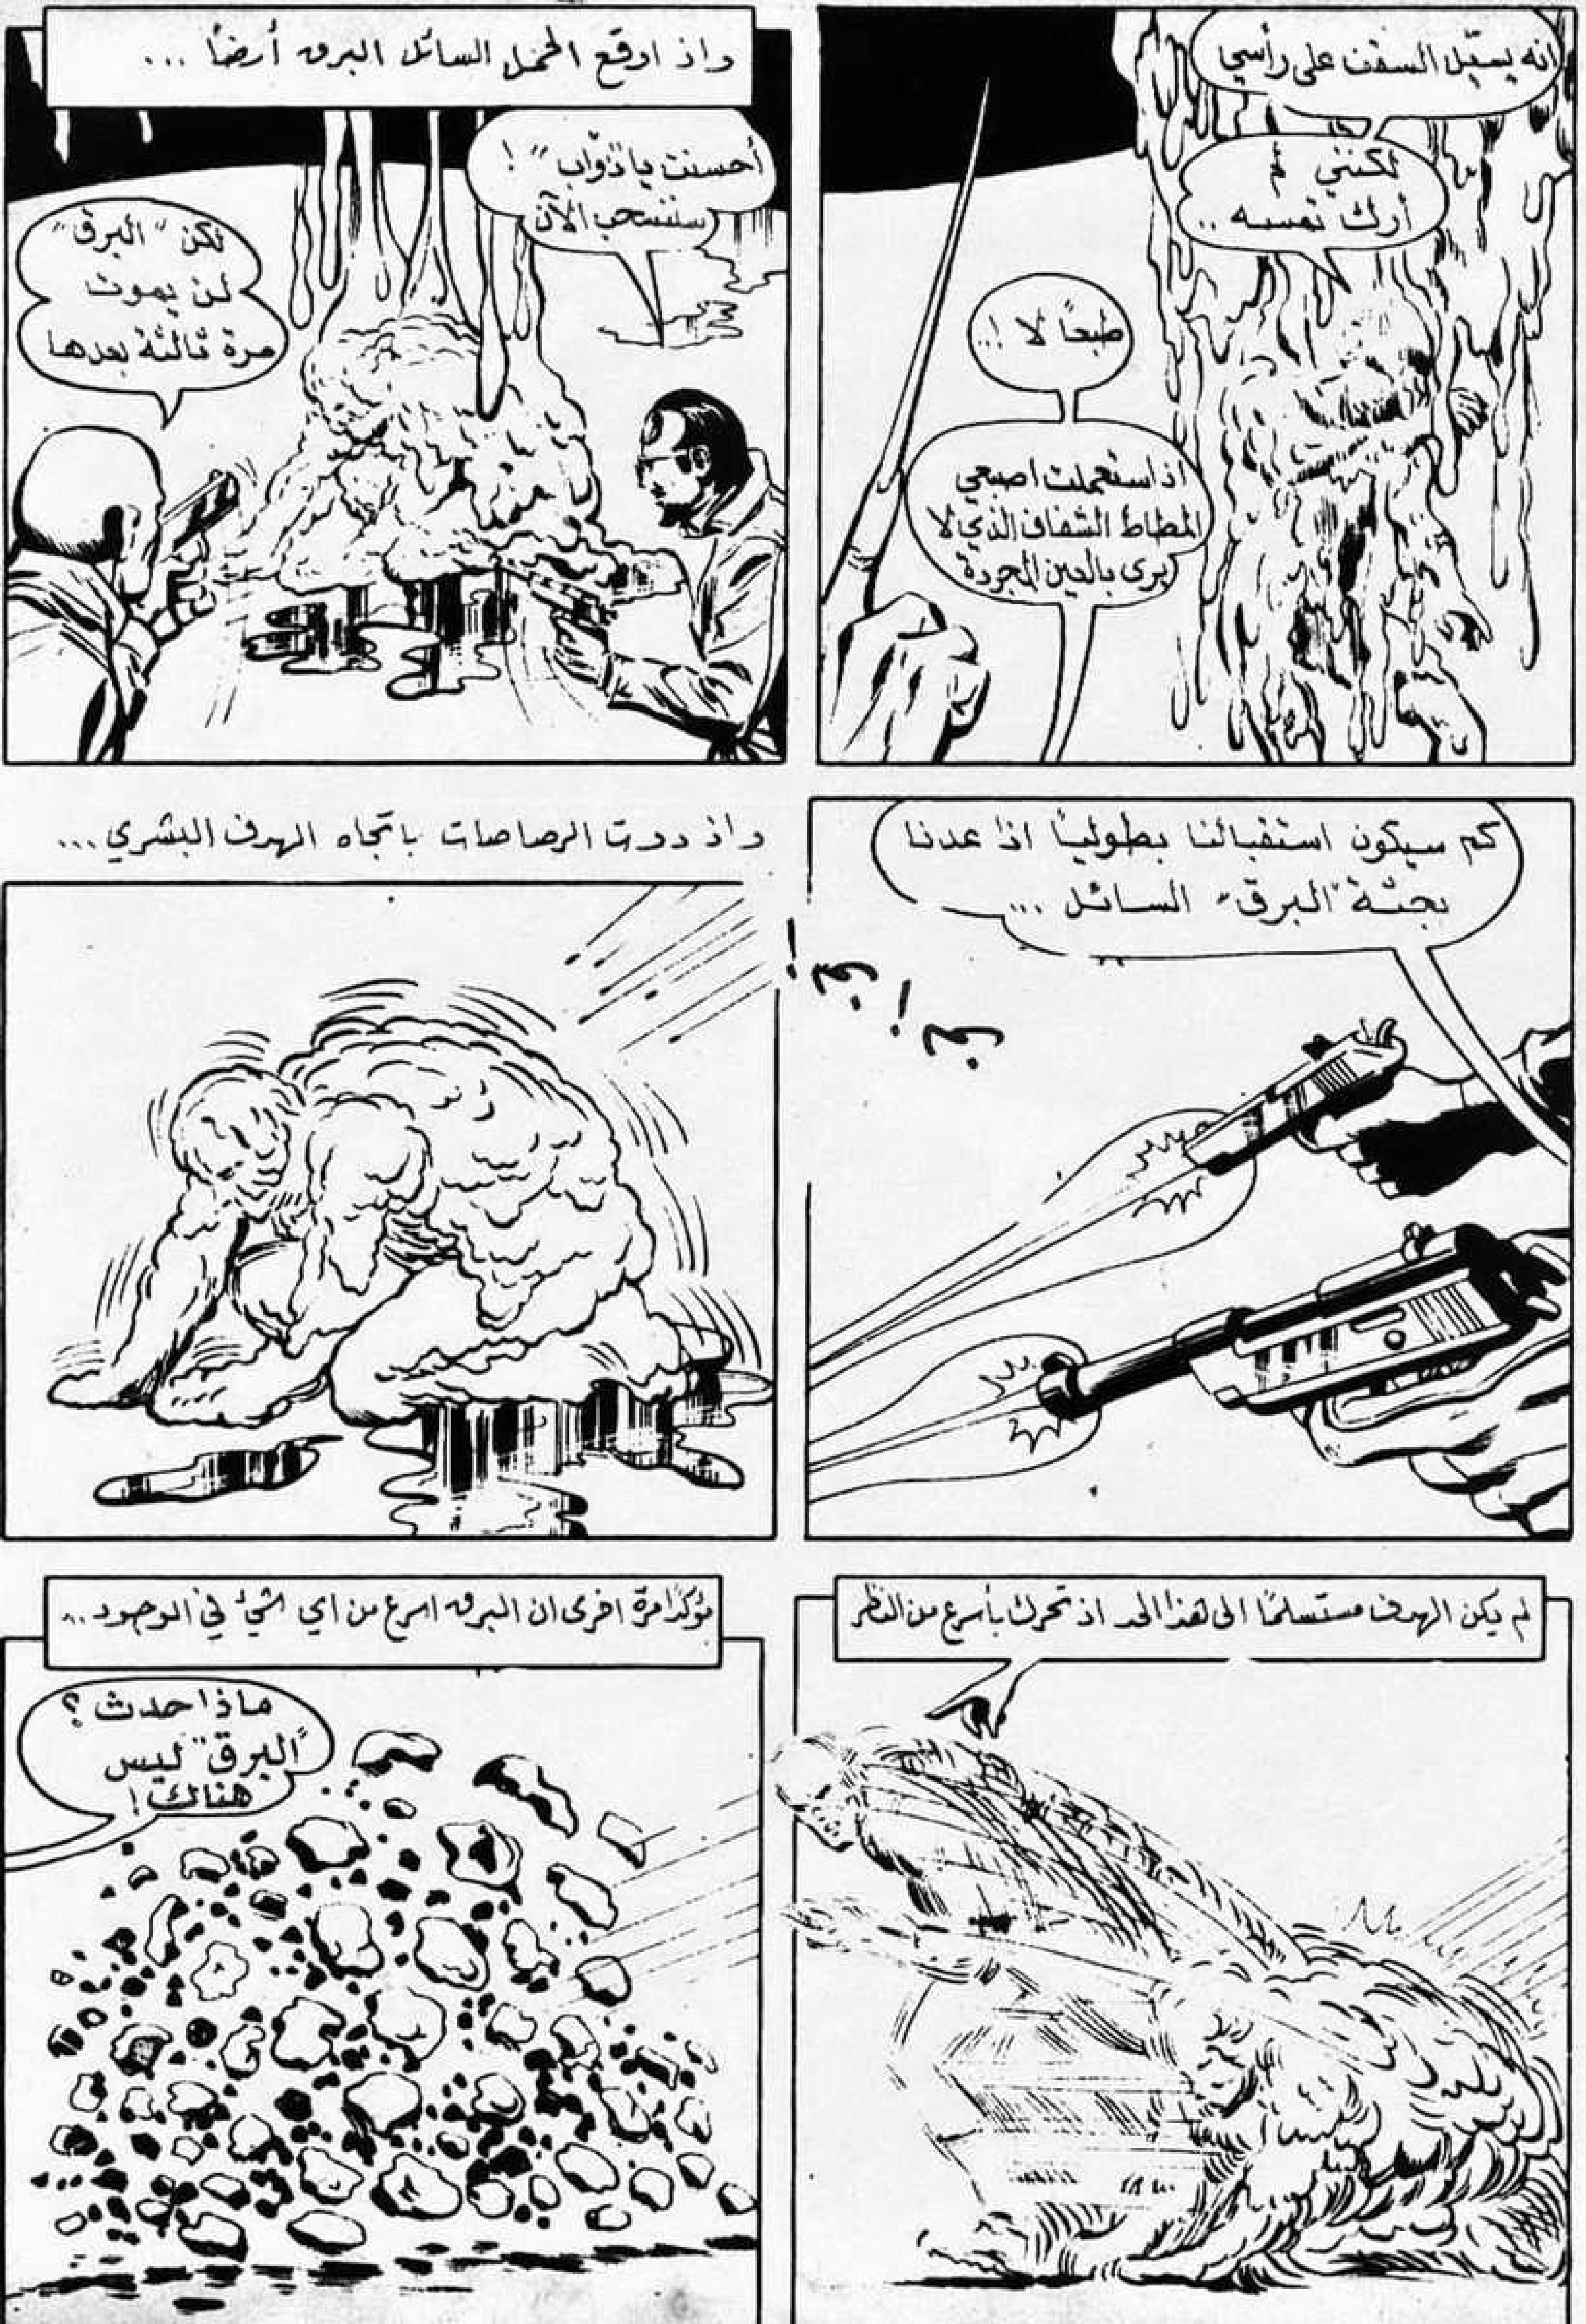 انه يسيّل السقف على رأسي
لكنني لم
أرك تمسه ..
طبعاً لا !..
اذ استعملت اصبعي
المطاط الشفاف الذي لا
يرى بالعين المجردة
واذ اوقع المخمل السائل البرق أرضاً ...
أحسنت يا "ذوّاب" !
سننسحب الآن
لكن "البرق"
لن يموت
مرة ثالثة بعدها
كم سيكون استقبالنا بطولياً اذا عدنا
بجثة "البرق" السائل ...
واذ دوت الرصاصات باتجاه الهدف البشري ...
لم يكن الهدف مستسلماً الى هذا الحد اذ تحرك بأسرع من النظر
مؤكداً مرة اخرى ان البرق اسرع من اي شيئ في الوجود ...
ماذا حدث ؟
"البرق" ليس
هناك !